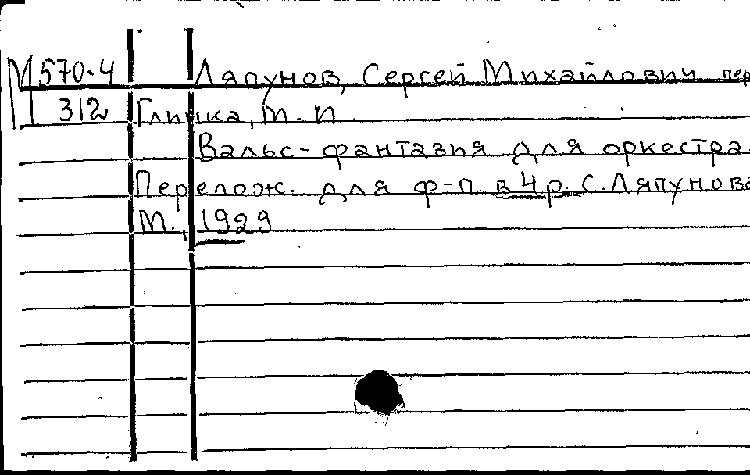 М 570-4 Ляпунов, Сергей Михайлович пер
312 Глинка, М. И.
Вальс-фантазия для оркестра.
Перелож. для ф-п в 4 р. С. Ляпунова
М., 1929